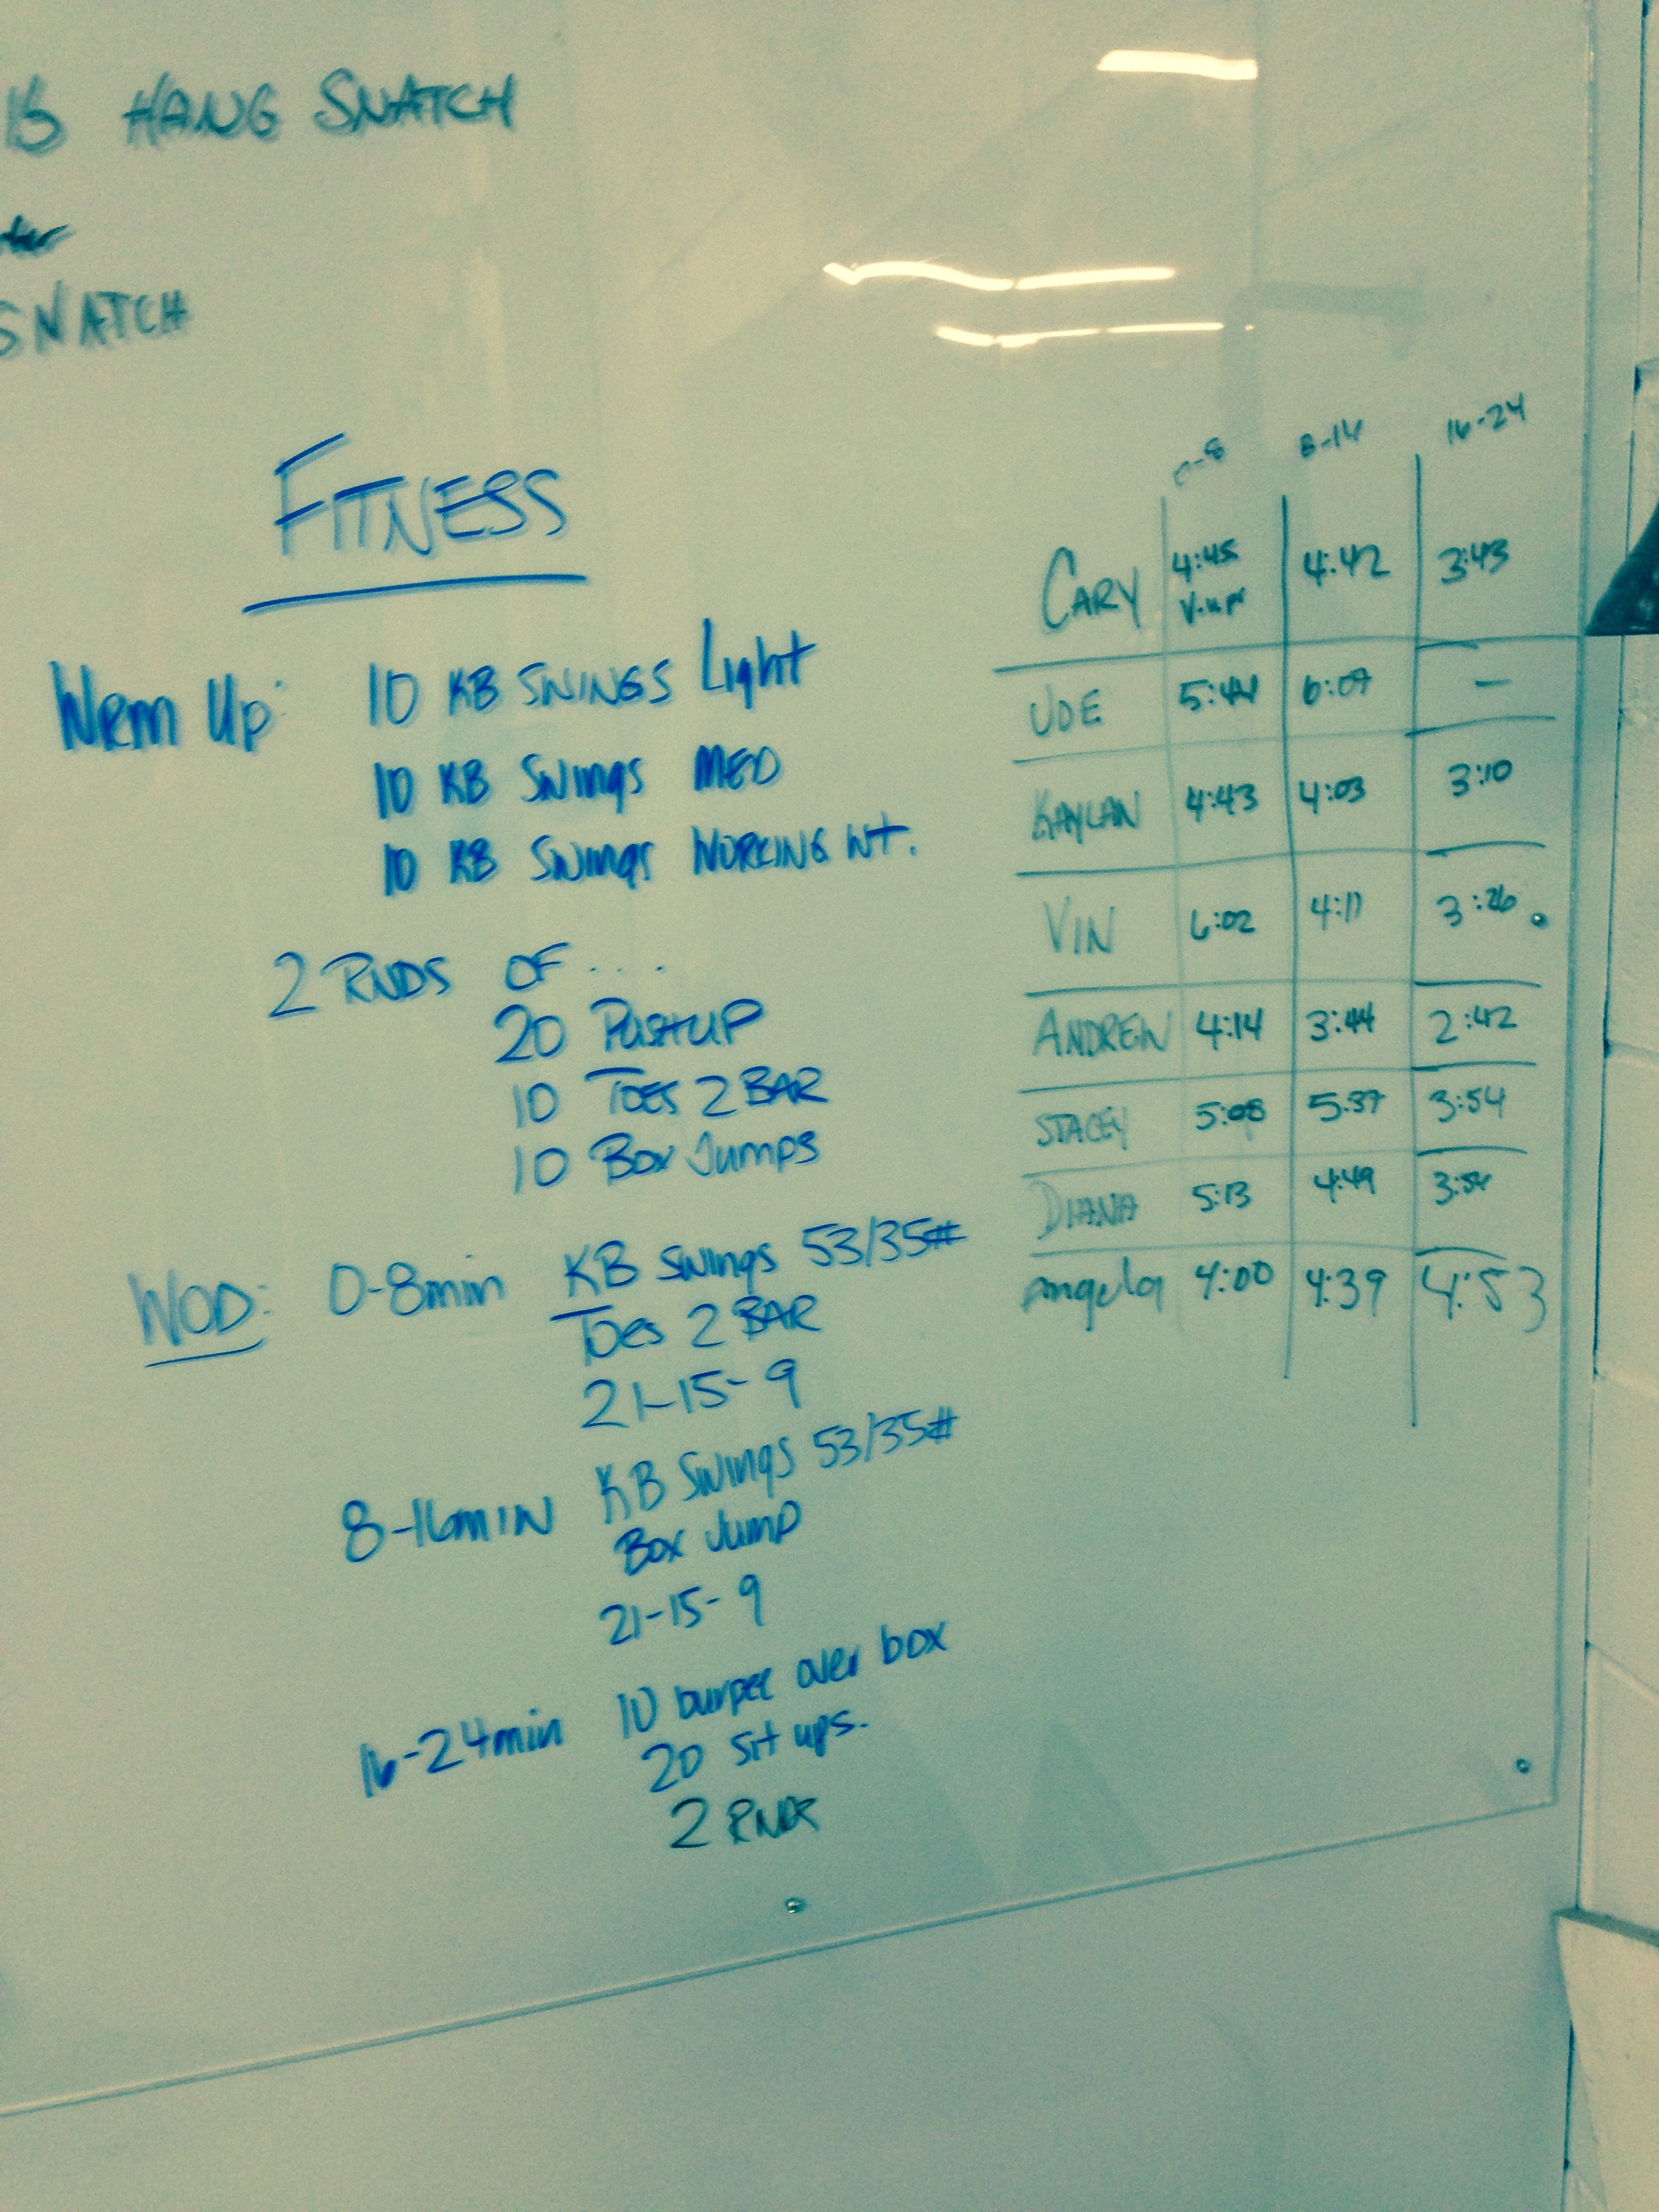 HANG SNATCH
SNATCH
FITNESS
WARM UP: 10 KB SWINGS Light
10 KB Swings MED
10 KB Swings WORKING WT.
2 RNDS OF ....
20 PUSHUP
10 TOES 2 BAR
10 BOX Jumps
WOD: 0-8min KB Swings 53/35#
TOES 2 BAR
21-15-9
8-16MIN KB Swings 53/35#
BOX JUMP
21-15-9
16-24min 10 burpee over box
20 sit ups.
2 RNDS
0-8 8-16 16-24
CARY 4:45 4:42 3:43
V-ups
5:44 6:07 -
KAYLAN 4:43 4:03 3:10
VIN 6:02 4:11 3:26
ANDREW 4:14 3:44 2:42
STACEY 5:08 5:37 3:54
DIANA 5:13 4:49 3:54
Angela 4:00 4:39 4:53